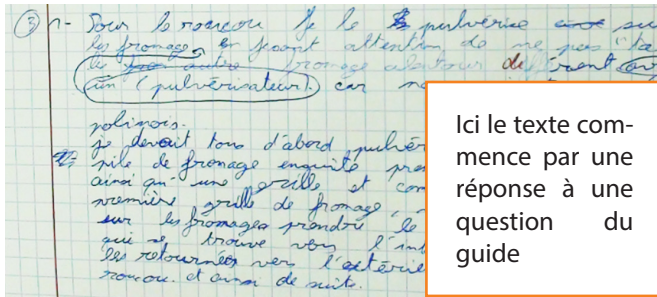 ③ 1- Pour le roucou je le pulvérise su
les fromages, en faisant attention de ne pas "ta
les autre fromage alentour différent (av
un (pulvérisateur) car
polinois.
je devait tous d'abord pulvér
pile de fromage enquite pre
ainsi qu'une grille et con
première grille de fromage,
sur les fromages prendre le
qui se trouve vers l'int
les retournées vers l'extérie
roucou. et ainsi de suite.
Ici le texte com-
mence par une
réponse à une
question du
guide